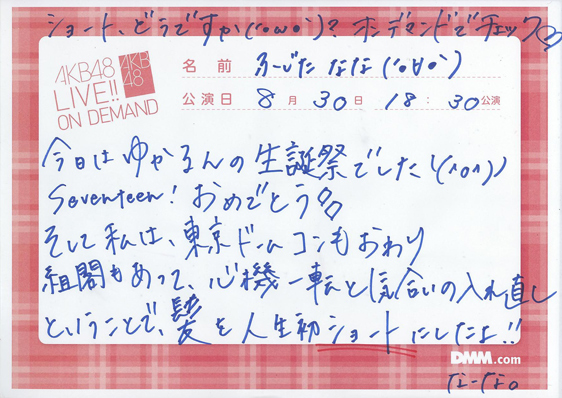 ショート、どうですか(*ºωº*)? オンデマンドでチェック♡
AKB48
LIVE!!
ON DEMAND
AKB
48
名 前 ふじた なな(*º∀º*)
公演日 8月 30日 18:30公演
今日はゆかるんの生誕祭でした\(^o^)/
Seventeen! おめでとう
そして私は、東京ドームコンもおわり
組閣もあって、心機一転と気合いの入れ直し
ということで、髪を人生初ショートにしたよ!!
DMM.com
なーな。